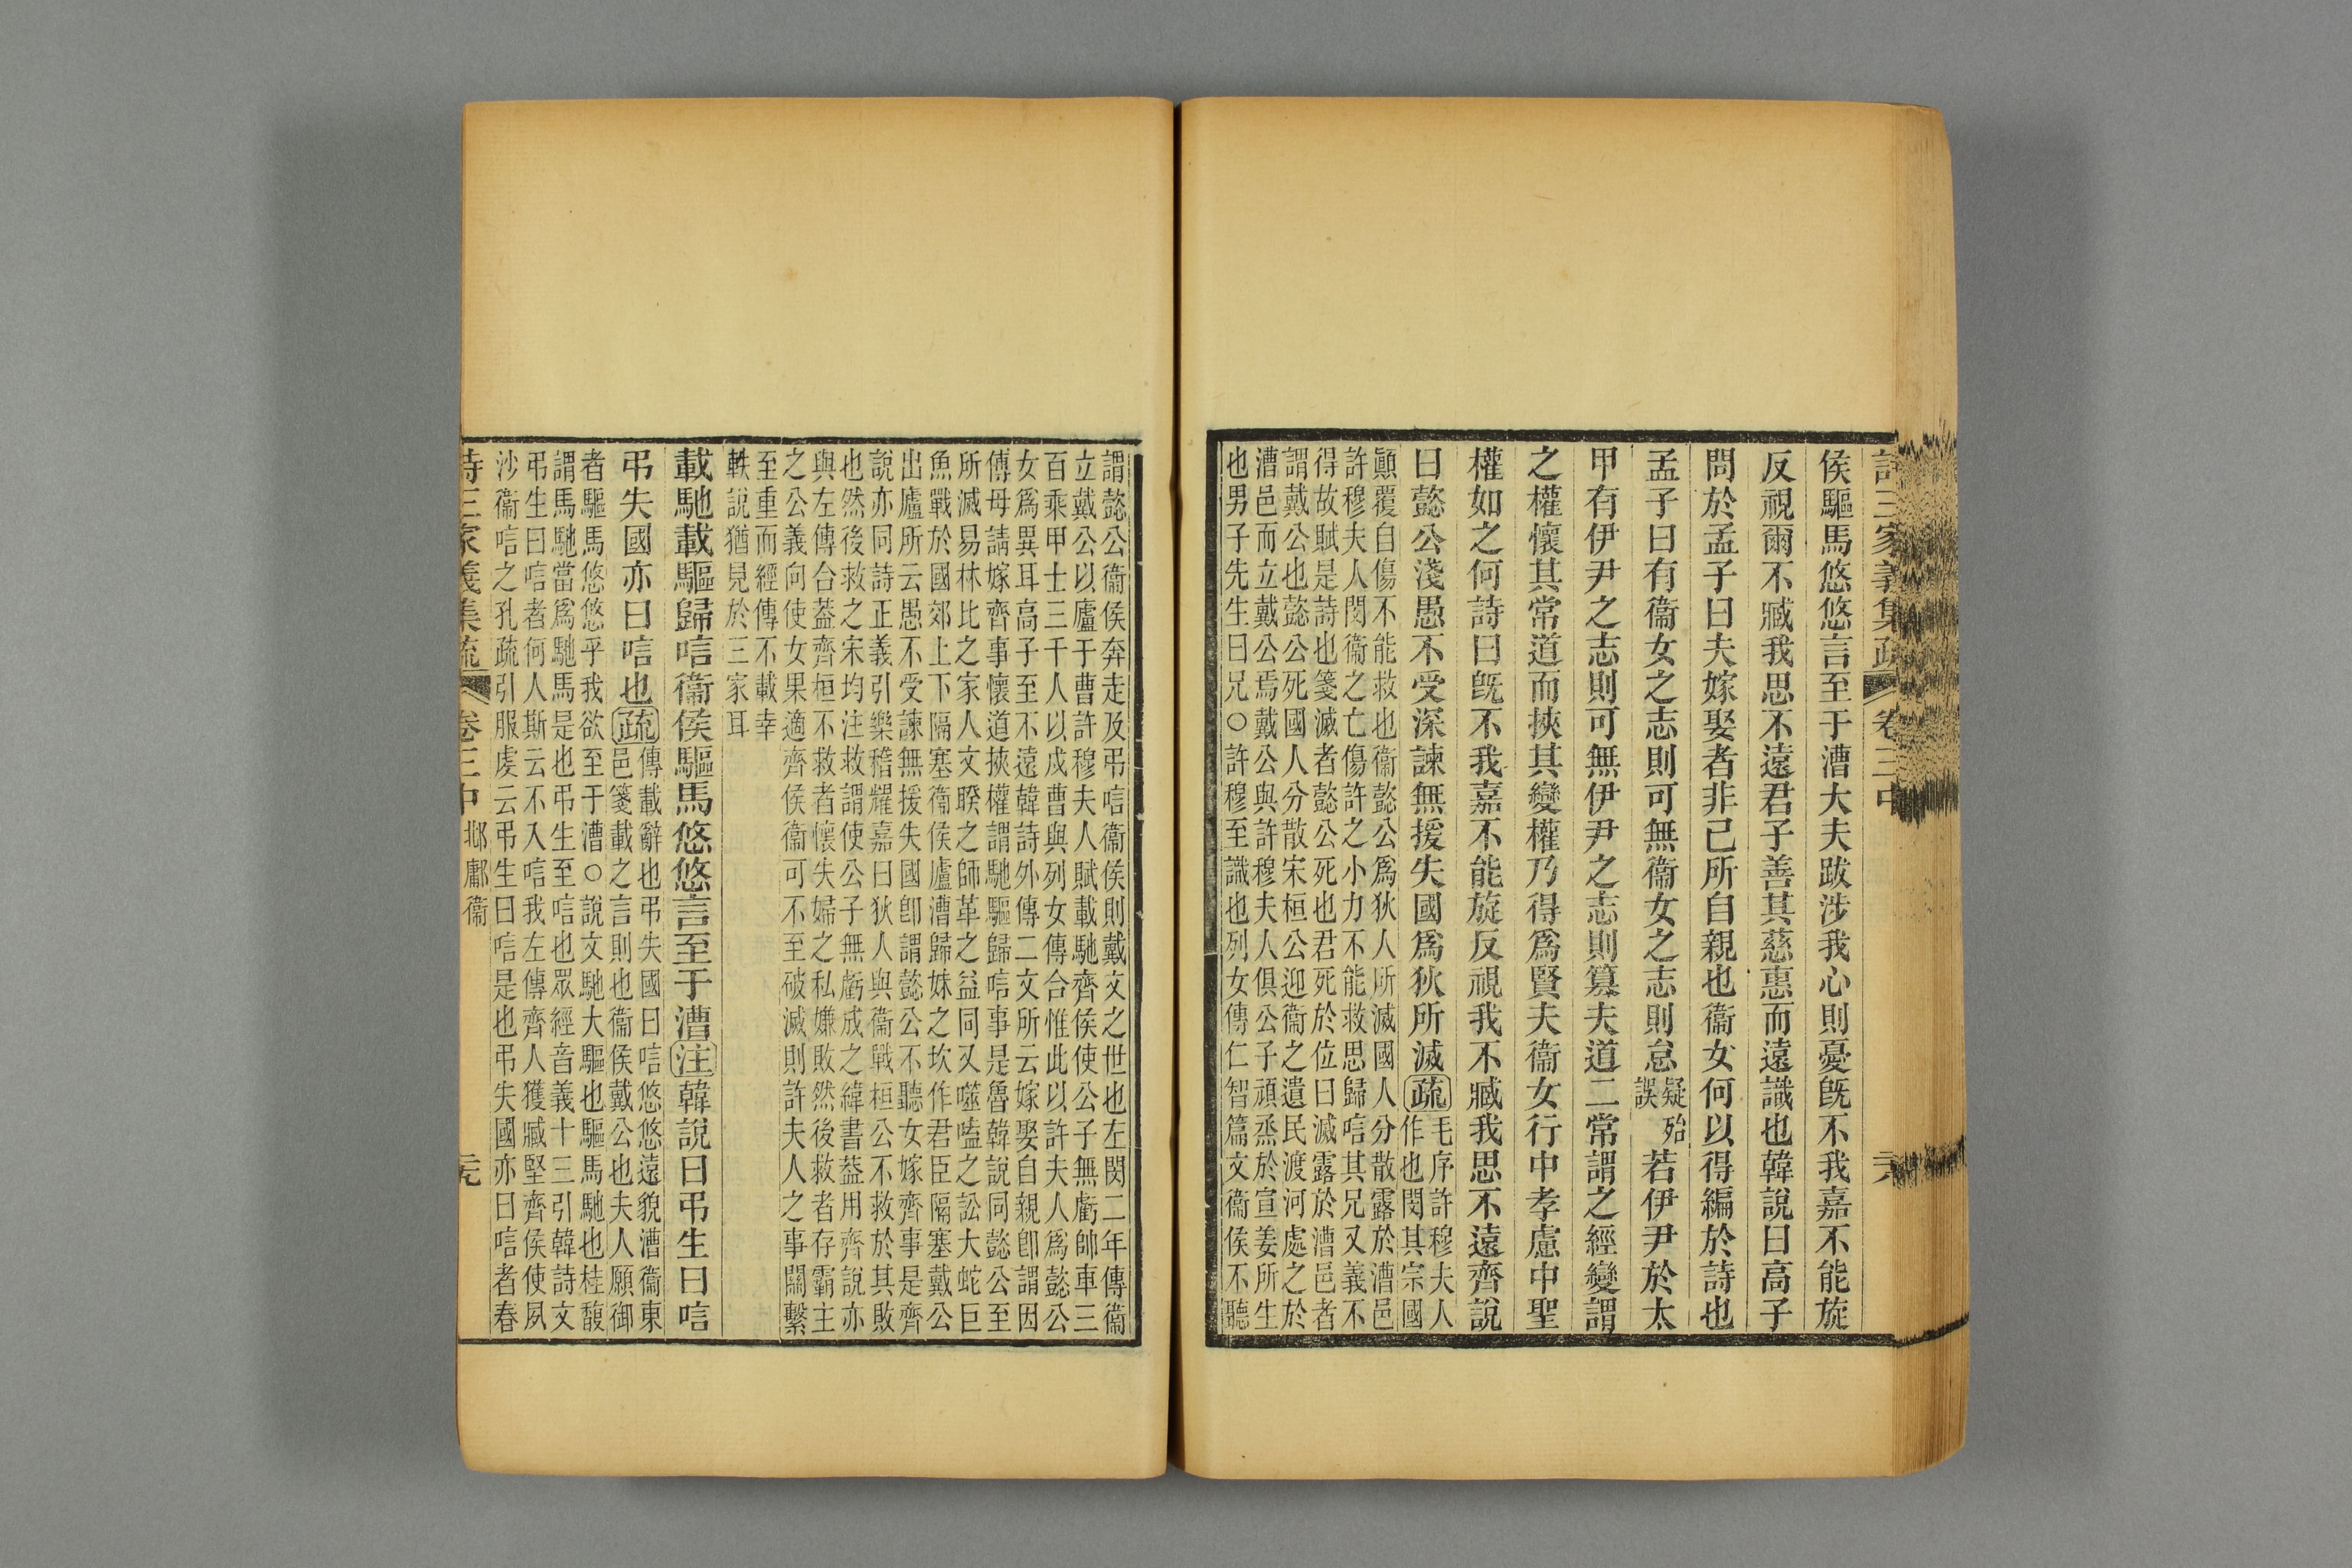 詩三家義集疏 卷三中 三六
侯驅馬悠悠言至于漕大夫跋涉我心則憂旣不我嘉不能旋
反視爾不臧我思不遠君子善其慈惠而遠識也韓說曰高子
問於孟子曰夫嫁娶者非己所自親也衞女何以得編於詩也
孟子曰有衞女之志則可無衞女之志則怠疑殆誤若伊尹於太
甲有伊尹之志則可無伊尹之志則篡夫道二常謂之經變謂
之權懷其常道而挾其變權乃得爲賢夫衞女行中孝慮中聖
權如之何詩曰旣不我嘉不能旋反視我不臧我思不遠齊說
曰懿公淺愚不受深諫無援失國爲狄所滅疏毛序許穆夫人
作也閔其宗國
顚覆自傷不能救也衞懿公爲狄人所滅國人分散露於漕邑
許穆夫人閔衞之亡傷許之小力不能救思歸唁其兄又義不
得故賦是詩也箋滅者懿公死也君死於位曰滅露於漕邑者
謂戴公也懿公死國人分散宋桓公迎衞之遺民渡河處之於
漕邑而立戴公焉戴公與許穆夫人俱公子頑烝於宣姜所生
也男子先生曰兄○許穆至識也列女傳仁智篇文衞侯不聽
謂懿公衞侯奔走及弔唁衞侯則戴文之世也左閔二年傳衞
立戴公以廬于曹許穆夫人賦載馳齊侯使公子無虧帥車三
百乘甲士三千人以戍曹與列女傳合惟此以許夫人爲懿公
女爲異耳高子至不遠韓詩外傳二文所云嫁娶自親卽謂因
傅母請嫁齊事懷道挾權謂馳驅歸唁事是魯韓說同懿公至
所滅易林比之家人文睽之師革之益同又噬嗑之訟大蛇巨
魚戰於國郊上下隔塞衞侯廬漕歸妹之坎作君臣隔塞戴公
出廬所云愚不受諫無援失國卽謂懿公不聽女嫁齊事是齊
說亦同詩正義引樂稽耀嘉曰狄人與衞戰桓公不救於其敗
也然後救之宋均注救謂使公子無虧戍之緯書葢用齊說亦
與左傳合葢齊桓不救者懷失婦之私嫌敗然後救者存霸主
之公義向使女果適齊侯衞可不至破滅則許夫人之事關繫
至重而經傳不載幸
軼說猶見於三家耳
載馳載驅歸唁衞侯驅馬悠悠言至于漕注韓說曰弔生曰唁
弔失國亦曰唁也疏傳載辭也弔失國曰唁悠悠遠貌漕衞東
邑箋載之言則也衞侯戴公也夫人願御
者驅馬悠悠乎我欲至于漕○說文馳大驅也驅馬馳也桂馥
謂馬馳當爲馳馬是也弔生至唁也眾經音義十三引韓詩文
弔生曰唁者何人斯云不入唁我左傳齊人獲臧堅齊侯使夙
沙衞唁之孔疏引服虔云弔生曰唁是也弔失國亦曰唁者春
詩三家義集疏 卷三中 邶鄘衞 三七